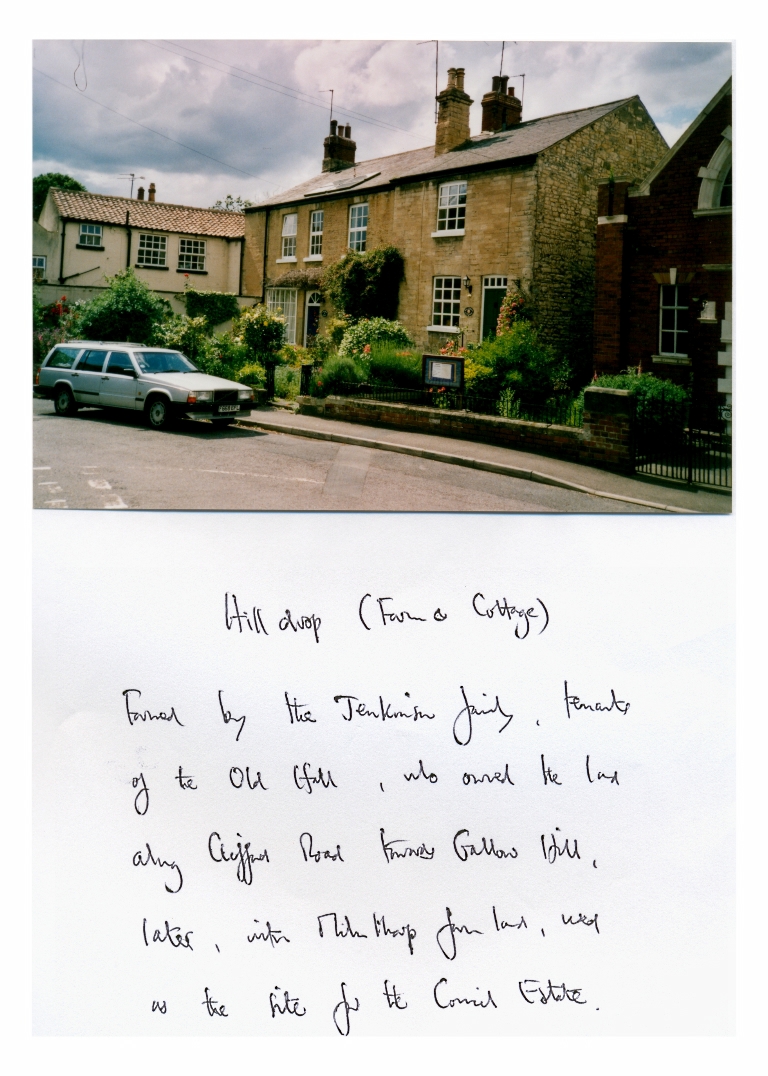 Hilldrop (Farm & Cottage)
Farmed by the Jenkinson family, tenants
of the Old Hall, who owned the land
along Clifford Road towards Gallow Hill,
later, with Milnthorp farm land, used
as the site for the Council Estate.